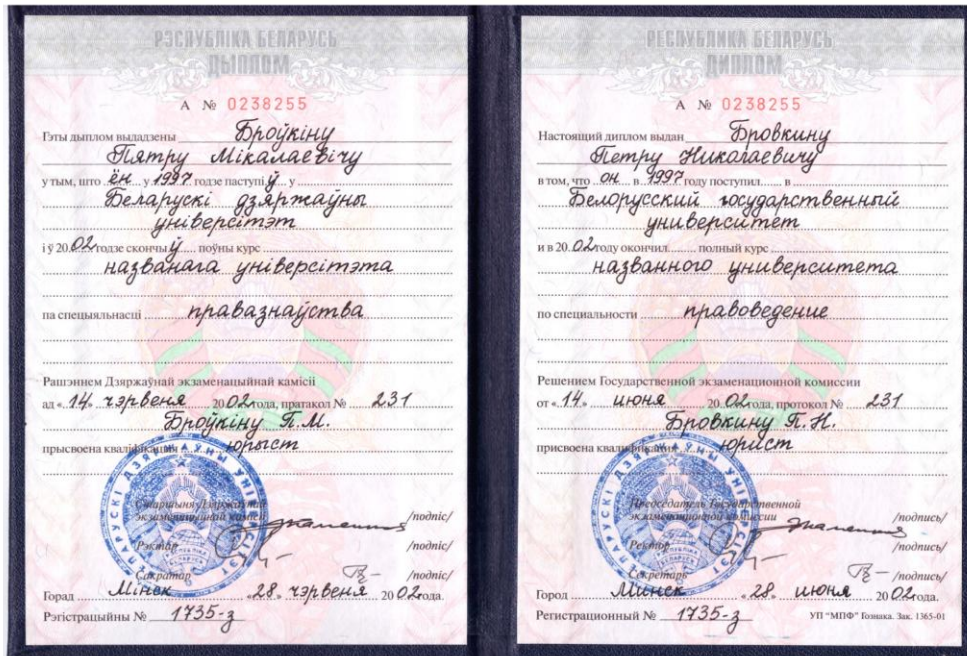 РЭСПУБЛІКА БЕЛАРУСЬ
ДЫПЛОМ
А № 0238255
Гэты дыплом выдадзены Броўкіну
Пятру Мікалаевічу
у тым, што ён у 1997 годзе паступіў у
Беларускі дзяржаўны
універсітэт
і ў 2002 годзе скончыў поўны курс
названага універсітэта
па спецыяльнасці правазнаўства
Рашэннем Дзяржаўнай экзаменацыйнай камісіі
ад «14» чэрвеня 2002 года, пратакол № 231
Броўкіну П.М.
прысвоена кваліфікацыя юрыст
Старшыня Дзяржаўнай
экзаменацыйнай камісіі /подпіс/
Рэктар /подпіс/
Сакратар /подпіс/
Горад Мінск «28» чэрвеня 2002 года.
Рэгістрацыйны № 1735-з
РЕСПУБЛИКА БЕЛАРУСЬ
ДИПЛОМ
А № 0238255
Настоящий диплом выдан Бровкину
Петру Николаевичу
в том, что он в 1997 году поступил в
Белорусский государственный
университет
и в 2002 году окончил полный курс
названного университета
по специальности правоведение
Решением Государственной экзаменационной комиссии
от «14» июня 2002 года, протокол № 231
Бровкину П.Н.
присвоена квалификация юрист
Председатель Государственной
экзаменационной комиссии /подпись/
Ректор /подпись/
Секретарь /подпись/
Город Минск «28» июня 2002 года.
Регистрационный № 1735-з
УП "МПФ" Гознака. Зак. 1365-01